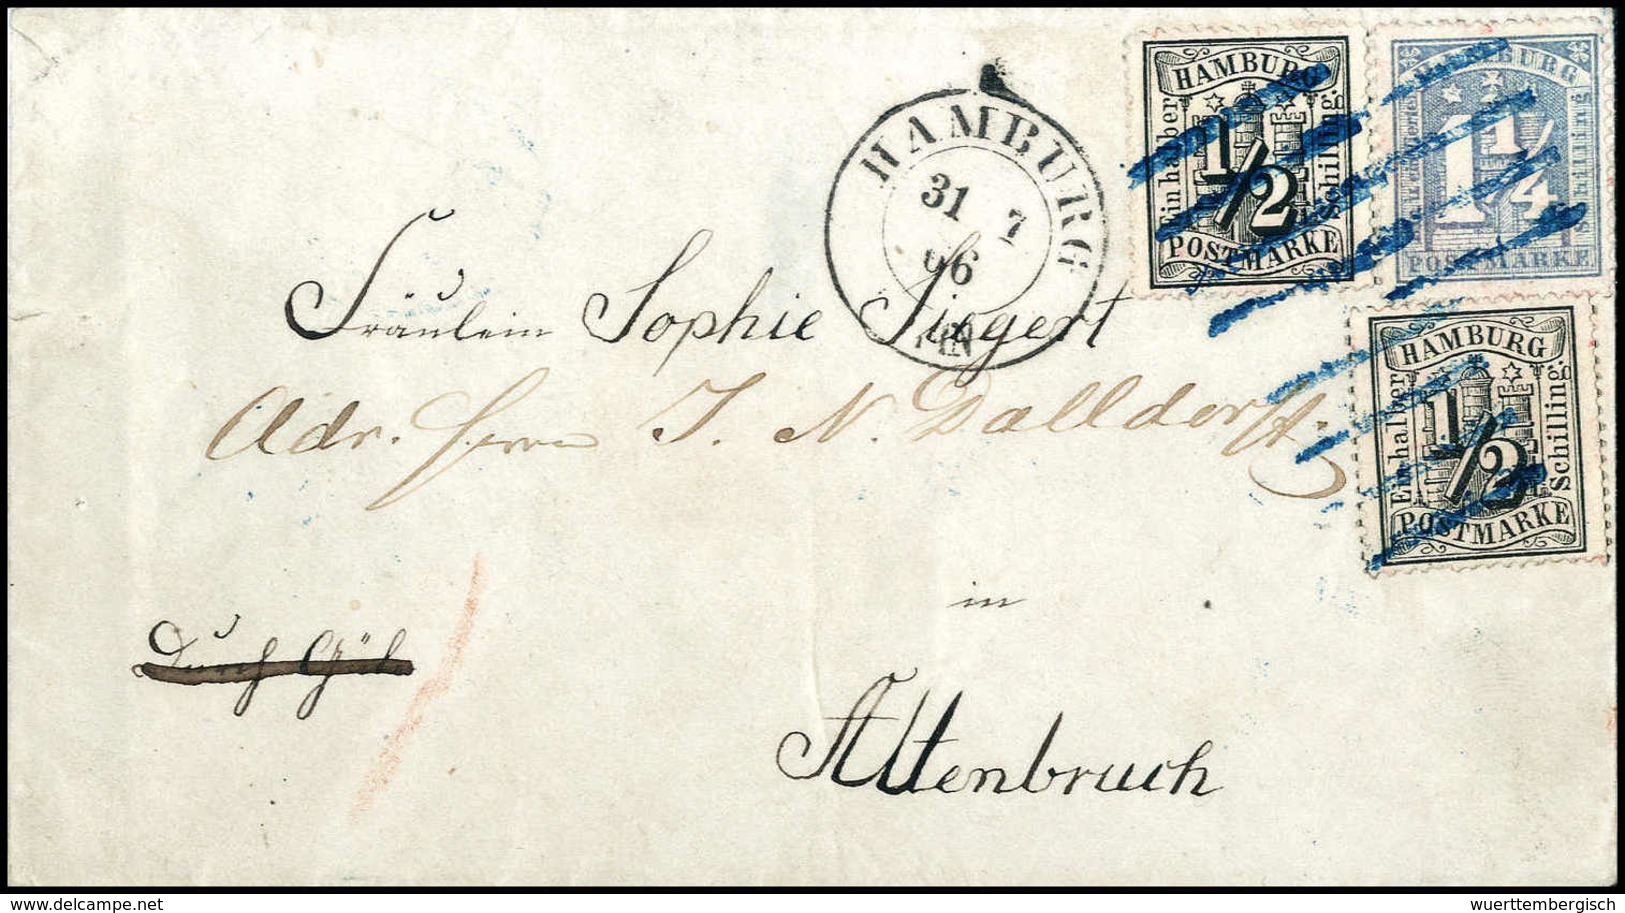 HAMBURG
Einhalber
1/2
Schilling.
POSTMARKE
HAMBURG
1 1/4
Schilling
POSTMARKE
HAMBURG
31 7
66
HAMBURG
Einhalber
1/2
Schilling.
POSTMARKE
Fräulein Sophie Siegert
Adr. Herrn J. N. Dalldorff.
in
Durch
Altenbruch
www.delcampe.net
wuerttembergisch